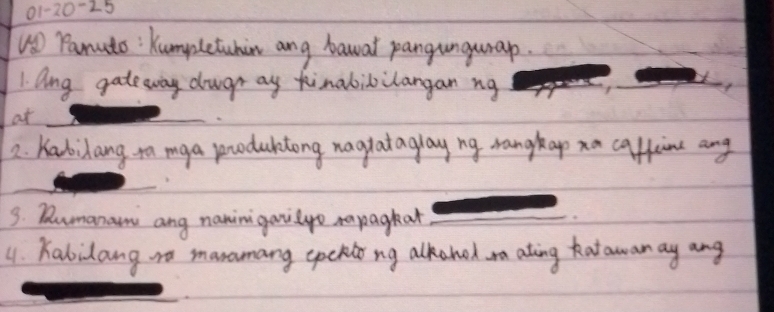 01-20-25
Panuto: Kumpletuhin ang bawat pangungusap.
1. Ang gateway drugs ay kinabibilangan ng , ,
at .
2. Kabilang sa mga produktong nagtataglay ng sangkap na caffeine ang
.
3. Dumarami ang naninigarilyo sapagkat .
4. Kabilang sa masamang epekto ng alkohol sa ating katawan ay ang
.